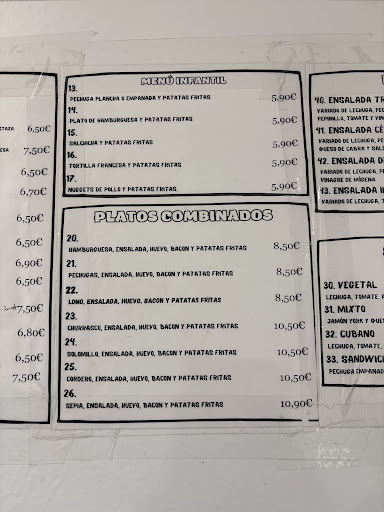 TAZA 6,50€
ESA 7,50€
6,50€
6,70€
6,50€
6,50€
6,90€
6,50€
7,50€
6,80€
6,50€
7,50€
MENÚ INFANTIL
13.
PECHUGA PLANCHA O EMPANADA Y PATATAS FRITAS 5,90€
14.
PLATO DE HAMBURGUESA Y PATATAS FRITAS 5,90€
15.
SALCHICHA Y PATATAS FRITAS 5,90€
16.
TORTILLA FRANCESA Y PATATAS FRITAS 5,90€
17.
NUGGETS DE POLLO Y PATATAS FRITAS 5,90€
PLATOS COMBINADOS
20.
HAMBURGUESA, ENSALADA, HUEVO, BACON Y PATATAS FRITAS 8,50€
21.
PECHUGAS, ENSALADA, HUEVO, BACON Y PATATAS FRITAS 8,50€
22.
LOMO, ENSALADA, HUEVO, BACON Y PATATAS FRITAS 8,50€
23.
CHURRASCO, ENSALADA, HUEVO, BACON Y PATATAS FRITAS 10,50€
24.
SOLOMILLO, ENSALADA, HUEVO, BACON Y PATATAS FRITAS 10,50€
25.
CORDERO, ENSALADA, HUEVO, BACON Y PATATAS FRITAS 10,50€
26.
SEPIA, ENSALADA, HUEVO, BACON Y PATATAS FRITAS 10,90€
40. ENSALADA TR
VARIADO DE LECHUGA, PE
PEPINILLO, TOMATE Y VIN
41. ENSALADA CÉ
VARIADO DE LECHUGA, PEC
QUESO DE CABRA Y SALS
42. ENSALADA D
VARIADO DE LECHUGA, PE
VINAGRE DE MÓDENA
43. ENSALADA
VARIADO DE LECHUGA, T
30. VEGETAL
LECHUGA, TOMATE,
31. MIXTO
JAMÓN YORK Y QUE
32. CUBANO
LECHUGA, TOMATE,
33. SANDWIC
PECHUGA EMPANAD